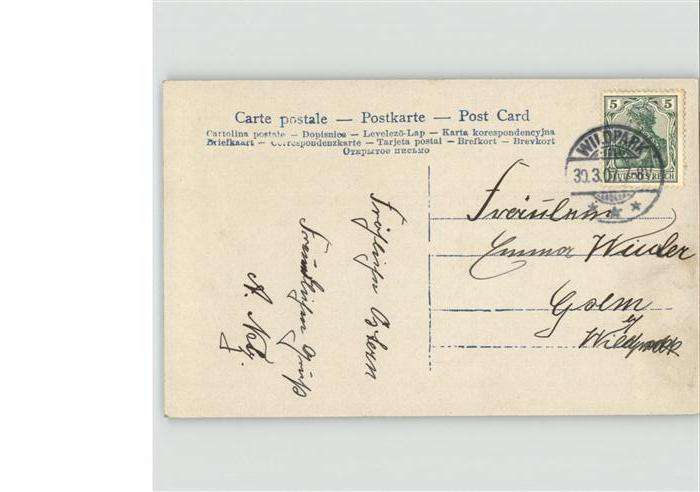 Carte postale — Postkarte — Post Card
Cartolina postale — Dopisnica — Levelező-Lap — Karta korespondencyjna
Briefkaart — Correspondenzkarte — Tarjeta postal — Brefkort — Brevkort
Открытое письмо
5 5
WILDPARK
30.3.07
DEUTSCHES REICH
Fräulein
Emma
Golm
Wildpark
Frölichen Ostern
Freundlichen Gruß
A.